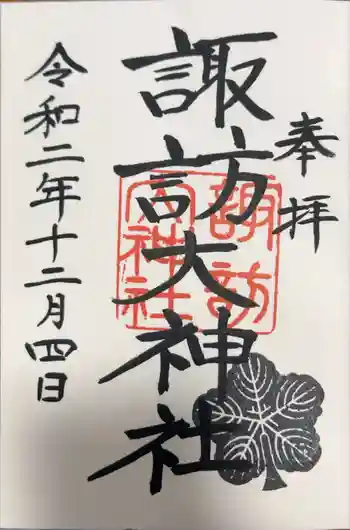 奉拝
諏訪大神社
諏訪
大神社
令和二年十二月四日